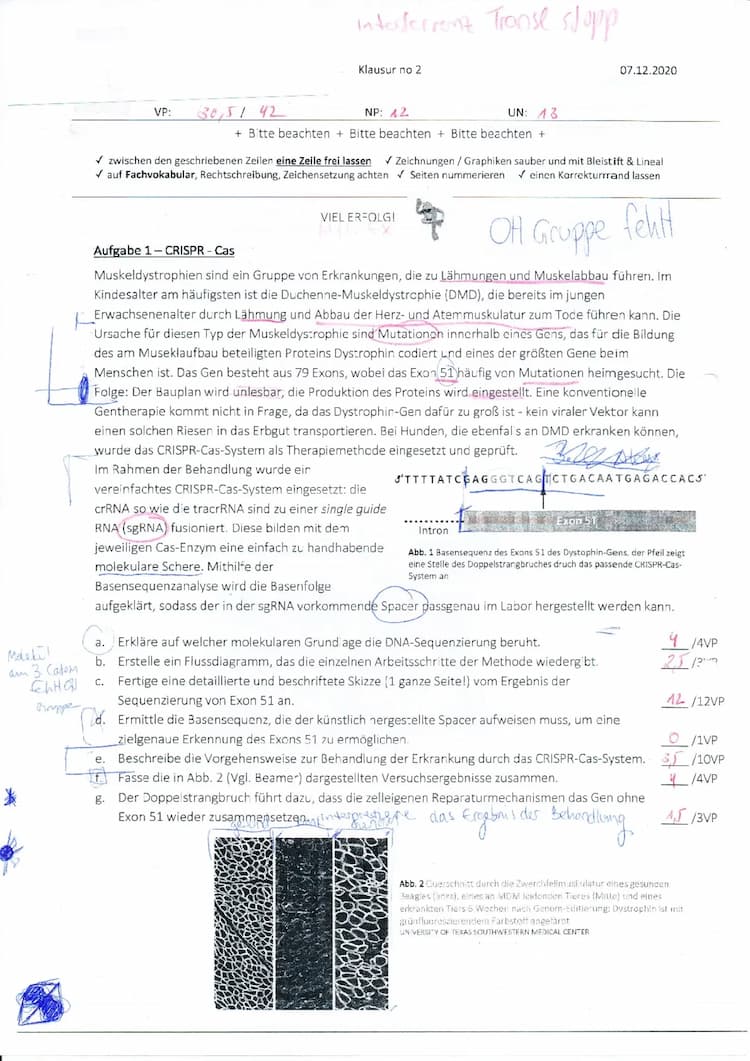 Interferrenz Transl stopp
Klausur no 2 07.12.2020
VP: 30,5 / 42 NP: 12 UN: 13
+ Bitte beachten + Bitte beachten + Bitte beachten +
✓ zwischen den geschriebenen Zeilen eine Zeile frei lassen ✓ Zeichnungen / Graphiken sauber und mit Bleistift & Lineal
✓ auf Fachvokabular, Rechtschreibung, Zeichensetzung achten ✓ Seiten nummerieren ✓ einen Korrekturrand lassen
VIEL ERFOLG!
OH Gruppe fehlt
Aufgabe 1 – CRISPR - Cas
Muskeldystrophien sind ein Gruppe von Erkrankungen, die zu Lähmungen und Muskelabbau führen. Im
Kindesalter am häufigsten ist die Duchenne-Muskeldystrophie (DMD), die bereits im jungen
Erwachsenenalter durch Lähmung und Abbau der Herz- und Atemmuskulatur zum Tode führen kann. Die
Ursache für diesen Typ der Muskeldystrophie sind Mutationen innerhalb eines Gens, das für die Bildung
des am Museklaufbau beteiligten Proteins Dystrophin codiert und eines der größten Gene beim
Menschen ist. Das Gen besteht aus 79 Exons, wobei das Exon 51 häufig von Mutationen heimgesucht. Die
Folge: Der Bauplan wird unlesbar, die Produktion des Proteins wird eingestellt. Eine konventionelle
Gentherapie kommt nicht in Frage, da das Dystrophin-Gen dafür zu groß ist - kein viraler Vektor kann
einen solchen Riesen in das Erbgut transportieren. Bei Hunden, die ebenfalls an DMD erkranken können,
wurde das CRISPR-Cas-System als Therapiemethode eingesetzt und geprüft.
Im Rahmen der Behandlung wurde ein
vereinfachtes CRISPR-Cas-System eingesetzt: die
crRNA so wie die tracrRNA sind zu einer single guide
RNA (sgRNA) fusioniert. Diese bilden mit dem
jeweiligen Cas-Enzym eine einfach zu handhabende
molekulare Schere. Mithilfe der
Basensequenzanalyse wird die Basenfolge
aufgeklärt, sodass der in der sgRNA vorkommende Spacer passgenau im Labor hergestellt werden kann.
3'TTTTATCGAGGGTCAGTCTGACAATGAGACCAC5'
Intron Exon 51
Abb. 1 Basensequenz des Exons 51 des Dystophin-Gens, der Pfeil zeigt
eine Stelle des Doppelstrangbruches druch das passende CRISPR-Cas-
System an
a. Erkläre auf welcher molekularen Grundlage die DNA-Sequenzierung beruht. 4 /4VP
b. Erstelle ein Flussdiagramm, das die einzelnen Arbeitsschritte der Methode wiedergibt. 2,5
c. Fertige eine detaillierte und beschriftete Skizze (1 ganze Seite!) vom Ergebnis der
Sequenzierung von Exon 51 an. 12 /12VP
d. Ermittle die Basensequenz, die der künstlich hergestellte Spacer aufweisen muss, um eine
zielgenaue Erkennung des Exons 51 zu ermöglichen. 0 /1VP
e. Beschreibe die Vorgehensweise zur Behandlung der Erkrankung durch das CRISPR-Cas-System. /10VP
f. Fasse die in Abb. 2 (Vgl. Beamer) dargestellten Versuchsergebnisse zusammen. 4 /4VP
g. Der Doppelstrangbruch führt dazu, dass die zelleigenen Reparaturmechanismen das Gen ohne
Exon 51 wieder zusammensetzen. 1,5 /3VP
am 3. C atom
fehlt OH
gruppe
das Ergebnis der Behandlung
Abb. 2 Querschnitt durch die Zwerchfellmuskulatur eines gesunden
Beagles (links), eines an MDM leidenden Tieres (Mitte) und eines
erkrankten Tiers 6 Wochen nach Genom-Editierung; Dystrophin ist mit
grünfluoreszierendem Farbstoff angefärbt
UNIVERSITY OF TEXAS SOUTHWESTERN MEDICAL CENTER